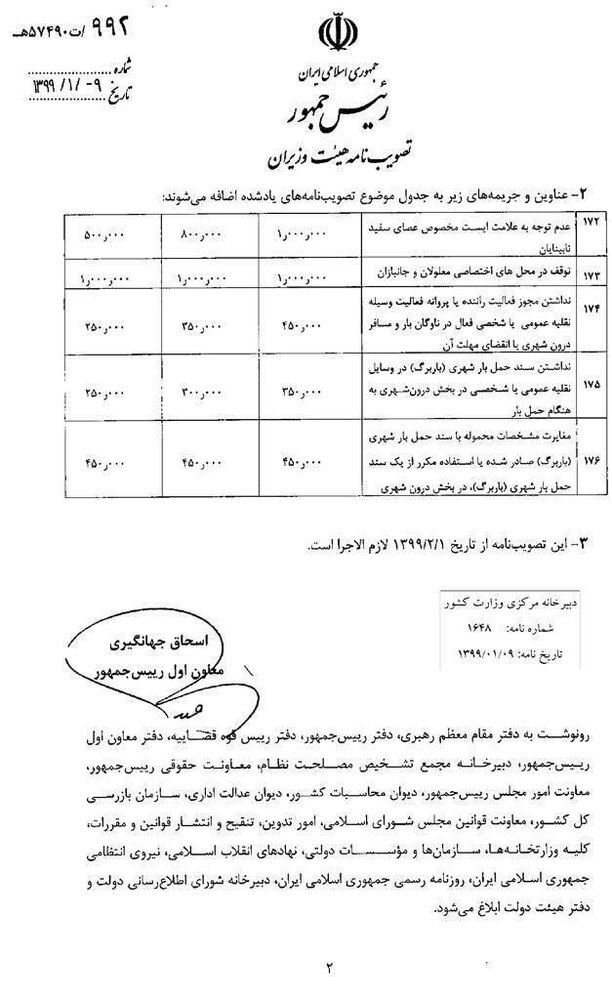 ۹۹۲/ت۵۷۴۹۰هـ
شماره
تاریخ ۱۳۹۹/۱/-۹
جمهوری اسلامی ایران
رئیس جمهور
تصویب نامه هیئت وزیران
۲- عناوین و جریمه‌های زیر به جدول موضوع تصویب‌نامه‌های یادشده اضافه می‌شوند:
۱۷۲ عدم توجه به علامت ایست مخصوص عصای سفید ۱٫۰۰۰٫۰۰۰ ۸۰۰٫۰۰۰ ۵۰۰٫۰۰۰
نابینایان
۱۷۳ توقف در محل های اختصاصی معلولان و جانبازان ۱٫۰۰۰٫۰۰۰ ۱٫۰۰۰٫۰۰۰ ۱٫۰۰۰٫۰۰۰
نداشتن مجوز فعالیت راننده یا پروانه فعالیت وسیله
۱۷۴ نقلیه عمومی یا شخصی فعال در ناوگان بار و مسافر ۴۵۰٫۰۰۰ ۳۵۰٫۰۰۰ ۲۵۰٫۰۰۰
درون شهری یا انقضای مهلت آن
نداشتن سند حمل بار شهری (باربرگ) در وسایل
۱۷۵ نقلیه عمومی یا شخصی در بخش درون‌شهری به ۳۵۰٫۰۰۰ ۳۰۰٫۰۰۰ ۲۵۰٫۰۰۰
هنگام حمل بار
مغایرت مشخصات محموله با سند حمل بار شهری
۱۷۶ (باربرگ) صادر شده یا استفاده مکرر از یک سند ۴۵۰٫۰۰۰ ۴۵۰٫۰۰۰ ۴۵۰٫۰۰۰
حمل بار شهری (باربرگ)، در بخش درون شهری
۳- این تصویب‌نامه از تاریخ ۱۳۹۹/۲/۱ لازم الاجرا است.
دبیرخانه مرکزی وزارت کشور
شماره نامه: ۱۶۴۸
تاریخ نامه: ۱۳۹۹/۰۱/۰۹
اسحاق جهانگیری
معاون اول رییس‌جمهور
رونوشت به دفتر مقام معظم رهبری، دفتر رییس‌جمهور، دفتر رییس قوه قضاییه، دفتر معاون اول
رییس‌جمهور، دبیرخانه مجمع تشخیص مصلحت نظام، معاونت حقوقی رییس‌جمهور،
معاونت امور مجلس رییس‌جمهور، دیوان محاسبات کشور، دیوان عدالت اداری، سازمان بازرسی
کل کشور، معاونت قوانین مجلس شورای اسلامی، امور تدوین، تنقیح و انتشار قوانین و مقررات،
کلیه وزارتخانه‌ها، سازمان‌ها و مؤسسات دولتی، نهادهای انقلاب اسلامی، نیروی انتظامی
جمهوری اسلامی ایران، روزنامه رسمی جمهوری اسلامی ایران، دبیرخانه شورای اطلاع‌رسانی دولت و
دفتر هیئت دولت ابلاغ می‌شود.
۲